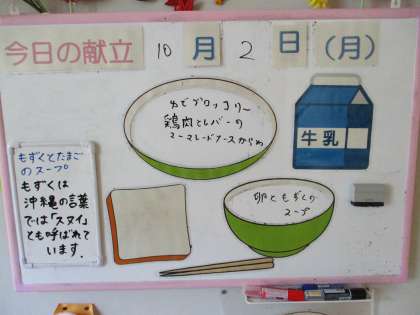 今日の献立 10月2日(月)
ゆでブロッコリー
鶏肉とレバーの
マーマレードソースがらめ
牛乳
もずくとたまご
のスープ
もずくは
沖縄の言葉
では「スヌイ」
とも呼ばれて
います。
卵ともずくの
スープ